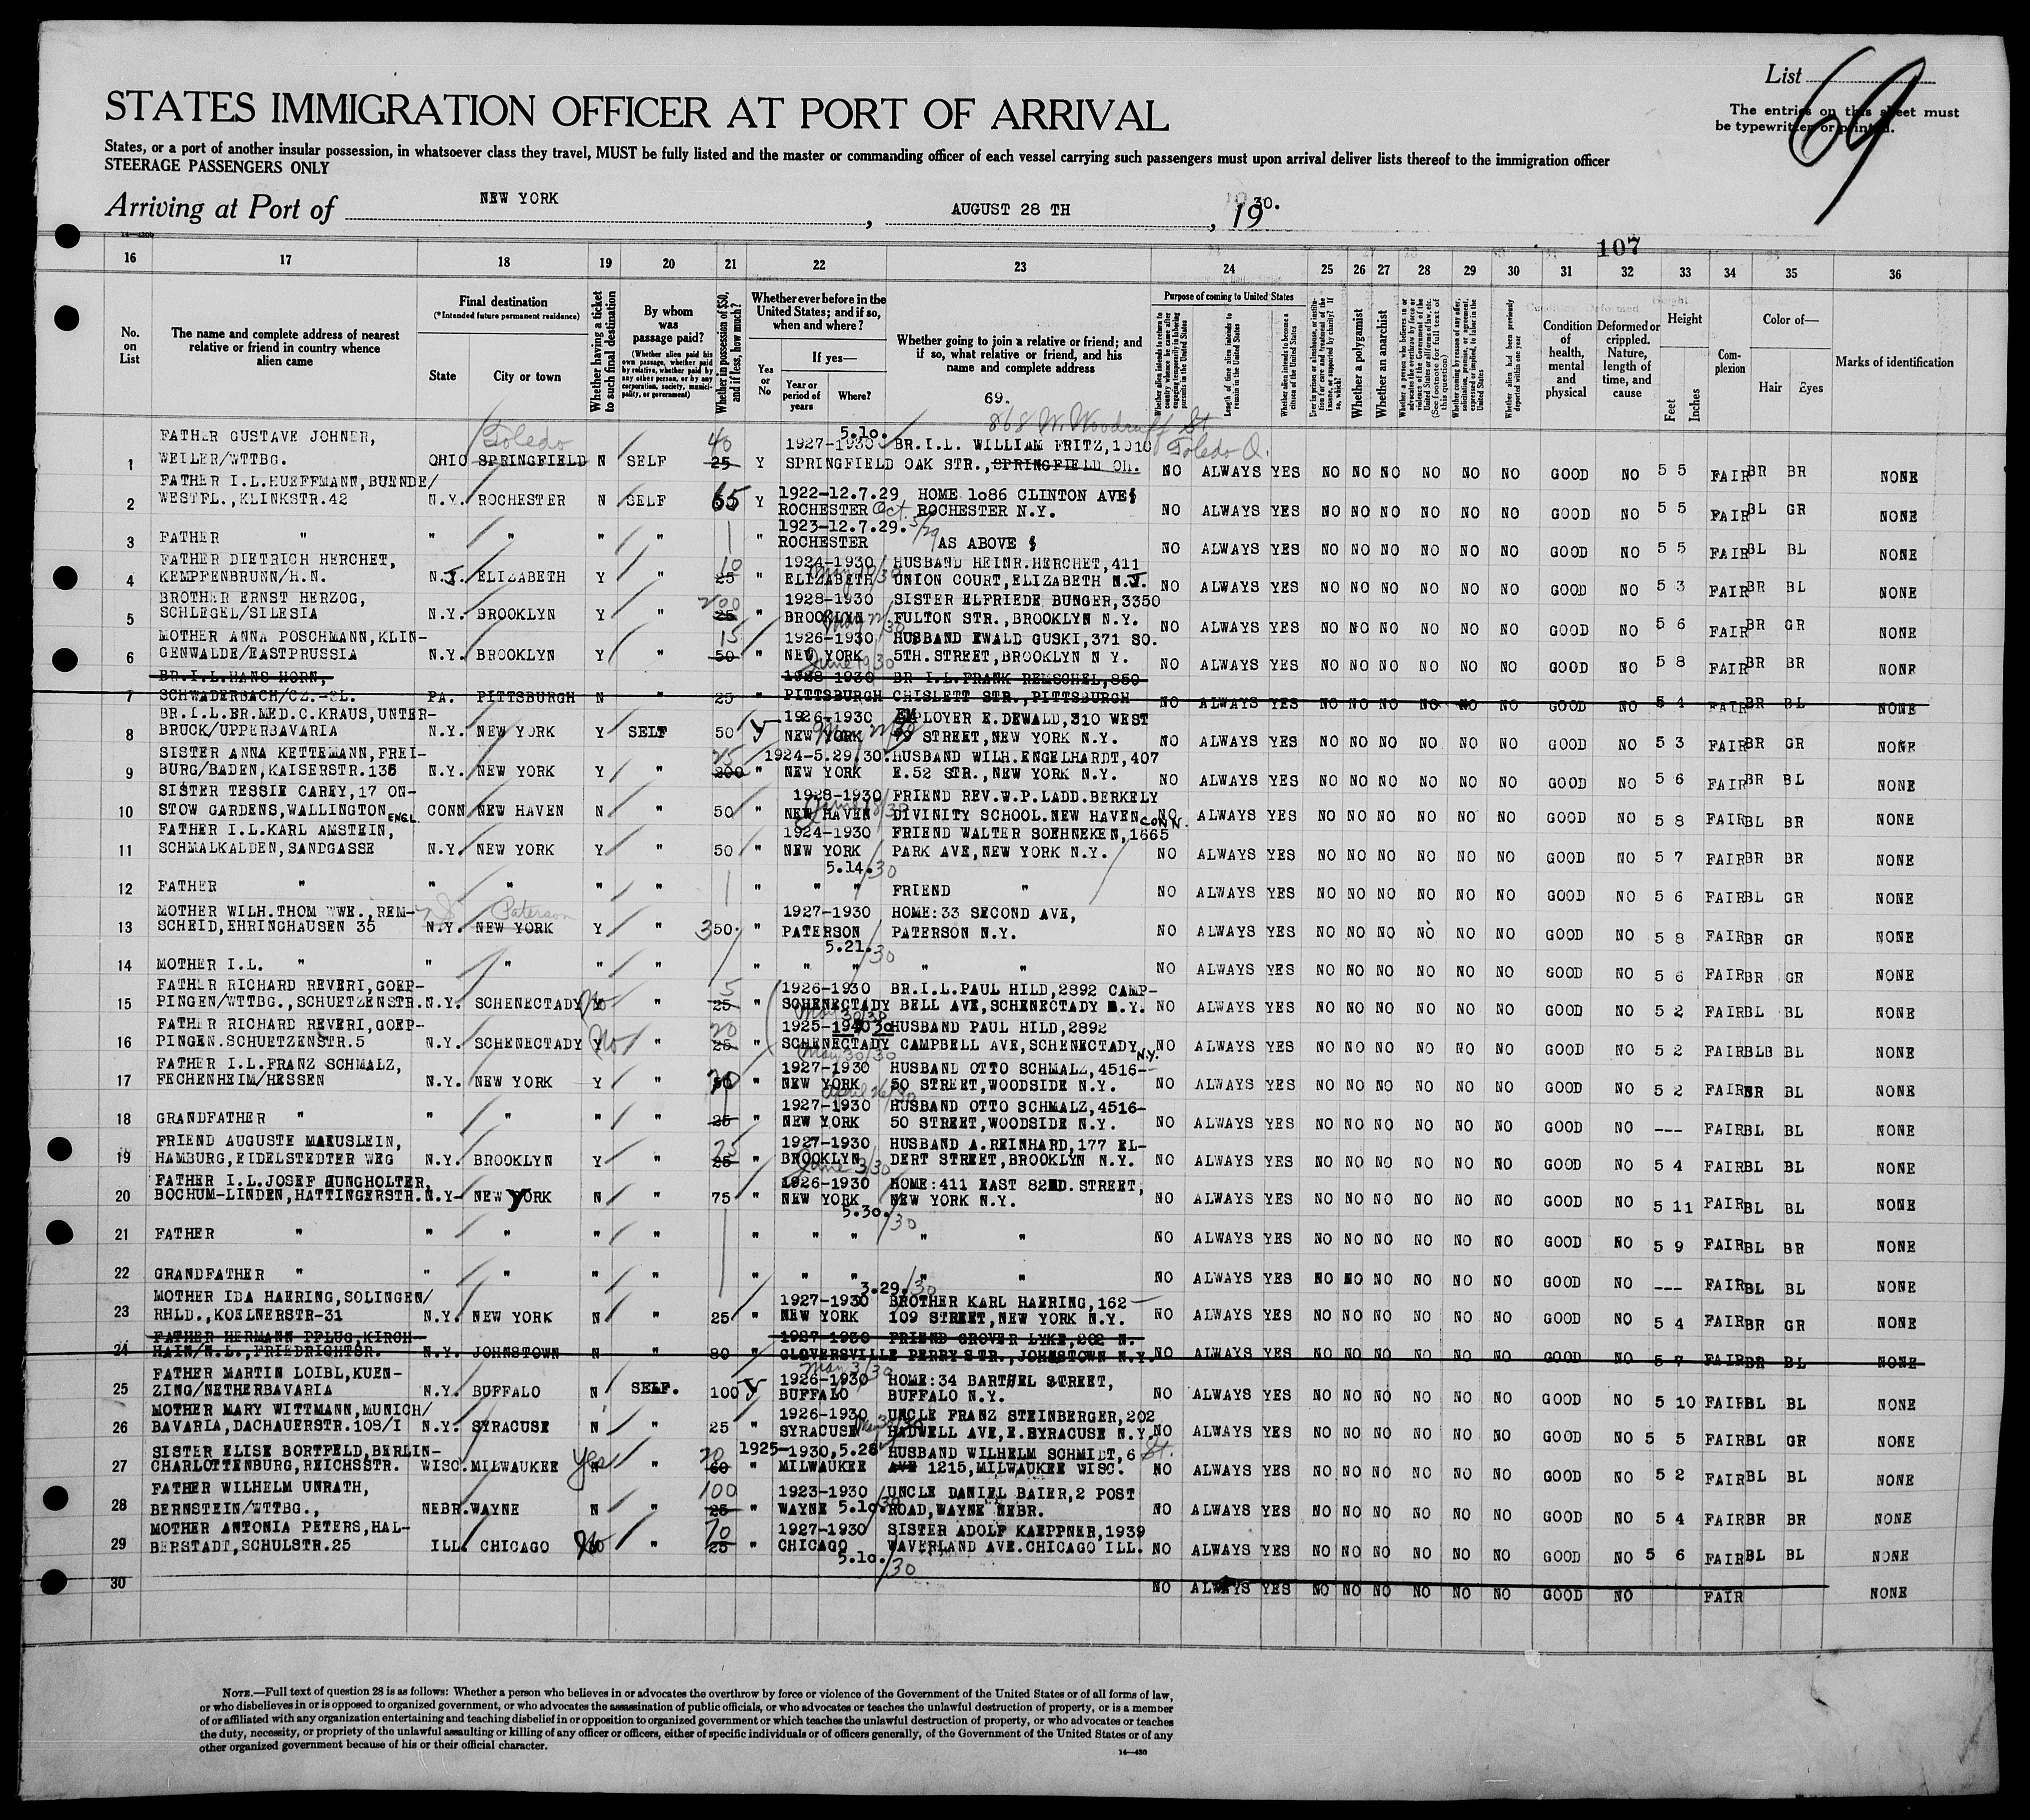 List 69
STATES IMMIGRATION OFFICER AT PORT OF ARRIVAL
The entries on this sheet must
be typewritten or printed.
States, or a port of another insular possession, in whatsoever class they travel, MUST be fully listed and the master or commanding officer of each vessel carrying such passengers must upon arrival deliver lists thereof to the immigration officer
STEERAGE PASSENGERS ONLY
Arriving at Port of NEW YORK, AUGUST 28 TH, 1930.
107
16 17 18 19 20 21 22 23 24 25 26 27 28 29 30 31 32 33 34 35 36
No. on List
The name and complete address of nearest relative or friend in country whence alien came
Final destination
(*Intended future permanent residence)
State
City or town
Whether having a ticket to such final destination
By whom was passage paid?
(Whether alien paid his own passage, whether paid by relative, whether paid by any other person, or by any corporation, society, municipality, or government)
Whether in possession of $50, and if less, how much?
Whether ever before in the United States; and if so, when and where?
Yes or No
If yes—
Year or period of years
Where?
Whether going to join a relative or friend; and if so, what relative or friend, and his name and complete address
69.
Purpose of coming to United States
Whether a polygamist
Whether an anarchist
Condition of health, mental and physical
Deformed or crippled. Nature, length of time, and cause
Height
Feet
Inches
Complexion
Color of—
Hair
Eyes
Marks of identification
868 W. Woodruff St.
Toledo 40 5.10. Toledo O.
FATHER GUSTAVE JOHNER, 1927-1930 BR.I.L. WILLIAM FRITZ, 1010
1 WEILER/WTTBG. OHIO SPRINGFIELD N SELF 25 Y SPRINGFIELD OAK STR., SPRINGFIELD OH. NO ALWAYS YES NO NO NO NO NO NO GOOD NO 5 5 FAIR BR BR NONE
FATHER I.L.HUEFFMANN,BUENDE/ 1922-12.7.29 HOME 1086 CLINTON AVE
2 WESTFL.,KLINKSTR.42 N.Y. ROCHESTER N SELF 65 Y ROCHESTER ROCHESTER N.Y. NO ALWAYS YES NO NO NO NO NO NO GOOD NO 5 5 FAIR BL GR NONE
Oct. 5/29
1923-12.7.29.
3 FATHER " " " " " " ROCHESTER AS ABOVE NO ALWAYS YES NO NO NO NO NO NO GOOD NO 5 5 FAIR BL BL NONE
FATHER DIETRICH HERCHET, 10 1924-1930 HUSBAND HEINR.HERCHET,411
4 KEMPFENBRUNN/H.N. N.J. ELIZABETH Y " 25 " ELIZABETH UNION COURT,ELIZABETH N.J. NO ALWAYS YES NO NO NO NO NO NO GOOD NO 5 3 FAIR BR BL NONE
BROTHER ERNST HERZOG, 200 1928-1930 SISTER ELFRIEDE BUNGER,3350
5 SCHLEGEL/SILESIA N.Y. BROOKLYN Y " 25 " BROOKLYN FULTON STR.,BROOKLYN N.Y. NO ALWAYS YES NO NO NO NO NO NO GOOD NO 5 6 FAIR BR GR NONE
MOTHER ANNA POSCHMANN,KLIN- 15 1926-1930 HUSBAND EWALD GUSKI,371 SO.
6 GENWALDE/EASTPRUSSIA N.Y. BROOKLYN Y " 50 " NEW YORK 5TH.STREET,BROOKLYN N Y. NO ALWAYS YES NO NO NO NO NO NO GOOD NO 5 8 FAIR BR BR NONE
BR.I.L.HANS HORN, 1928-1930 BR I.L.FRANK REMSCHEL,850
7 SCHWADERBACH/CZ.-SL. PA. PITTSBURGH N 25 " PITTSBURGH CHISLETT STR.,PITTSBURGH NO ALWAYS YES NO NO NO NO NO NO GOOD NO 5 4 FAIR BR BL NONE
BR.I.L.BR.MED.C.KRAUS,UNTER- 1926-1930 EMPLOYER E.DEWALD,310 WEST
8 BRUCK/UPPERBAVARIA N.Y. NEW YORK Y SELF 50 Y NEW YORK STREET,NEW YORK N.Y. NO ALWAYS YES NO NO NO NO NO NO GOOD NO 5 3 FAIR BR GR NONE
SISTER ANNA KETTEMANN,FREI- 25 1924-5.29.30. HUSBAND WILH.ENGELHARDT,407
9 BURG/BADEN,KAISERSTR.138 N.Y. NEW YORK Y " 200 " NEW YORK E.52 STR.,NEW YORK N.Y. NO ALWAYS YES NO NO NO NO NO NO GOOD NO 5 6 FAIR BR BL NONE
SISTER TESSIE CAREY,17 ON- 1928-1930 FRIEND REV.W.P.LADD.BERKELY
10 STOW GARDENS,WALLINGTON ENGL. CONN NEW HAVEN N " 50 " NEW HAVEN DIVINITY SCHOOL.NEW HAVEN CONN. NO ALWAYS YES NO NO NO NO NO NO GOOD NO 5 8 FAIR BL BR NONE
FATHER I.L.KARL AMSTEIN, 1924-1930 FRIEND WALTER SOEHNEKEN,1665
11 SCHMALKALDEN,SANDGASSE N.Y. NEW YORK Y " 50 " NEW YORK PARK AVE,NEW YORK N.Y. NO ALWAYS YES NO NO NO NO NO NO GOOD NO 5 7 FAIR BR BR NONE
5.14./30
12 FATHER " " " " " " " " FRIEND " NO ALWAYS YES NO NO NO NO NO NO GOOD NO 5 6 FAIR BL GR NONE
MOTHER WILH.THOM WWE.,REM- Paterson 1927-1930 HOME:33 SECOND AVE,
13 SCHEID,EHRINGHAUSEN 35 N.Y. NEW YORK Y " 350. " PATERSON PATERSON N.Y. NO ALWAYS YES NO NO NO NO NO NO GOOD NO 5 8 FAIR BR GR NONE
5.21./30
14 MOTHER I.L. " " " " " " " " " " NO ALWAYS YES NO NO NO NO NO NO GOOD NO 5 6 FAIR BR GR NONE
FATHER RICHARD REVERI,GOEP- 5 1926-1930 BR.I.L.PAUL HILD,2892 CAMP-
15 PINGEN/WTTBG.,SCHUETZENSTR. N.Y. SCHENECTADY No " 25 " SCHENECTADY BELL AVE,SCHENECTADY N.Y. NO ALWAYS YES NO NO NO NO NO NO GOOD NO 5 2 FAIR BL BL NONE
May 30/30
FATHER RICHARD REVERI,GOEP- 20 1925-1930 HUSBAND PAUL HILD,2892
16 PINGEN.SCHUETZENSTR.5 N.Y. SCHENECTADY No Y " 25 " SCHENECTADY CAMPBELL AVE,SCHENECTADY N.Y. NO ALWAYS YES NO NO NO NO NO NO GOOD NO 5 2 FAIR BLB BL NONE
May 30/30
FATHER I.L.FRANZ SCHMALZ, 1927-1930 HUSBAND OTTO SCHMALZ,4516-
17 FECHENHEIM/HESSEN N.Y. NEW YORK Y " " NEW YORK 50 STREET,WOODSIDE N.Y. NO ALWAYS YES NO NO NO NO NO NO GOOD NO 5 2 FAIR BR BL NONE
April 26/30
1927-1930 HUSBAND OTTO SCHMALZ,4516-
18 GRANDFATHER " " " " " 25 " NEW YORK 50 STREET,WOODSIDE N.Y. NO ALWAYS YES NO NO NO NO NO NO GOOD NO --- FAIR BL BL NONE
FRIEND AUGUSTE MAEUSLEIN, 25 1927-1930 HUSBAND A.REINHARD,177 EL-
19 HAMBURG,EIDELSTEDTER WEG N.Y. BROOKLYN Y " 25 " BROOKLYN DERT STREET,BROOKLYN N.Y. NO ALWAYS YES NO NO NO NO NO NO GOOD NO 5 4 FAIR BL BL NONE
June 3/30
FATHER I.L.JOSEF JUNGHOLTER, 1926-1930 HOME:411 EAST 82ND.STREET,
20 BOCHUM-LINDEN,HATTINGERSTR. N.Y- NEW YORK N " 75 " NEW YORK NEW YORK N.Y. NO ALWAYS YES NO NO NO NO NO NO GOOD NO 5 11 FAIR BL BL NONE
5.30./30
21 FATHER " " " " " " " " " " NO ALWAYS YES NO NO NO NO NO NO GOOD NO 5 9 FAIR BL BR NONE
22 GRANDFATHER " " " " " " " " " " NO ALWAYS YES NO NO NO NO NO NO GOOD NO --- FAIR BL BL NONE
3.29./30
MOTHER IDA HAERING,SOLINGEN/ 1927-1930 BROTHER KARL HAERING,162-
23 RHLD.,KOELNERSTR-31 N.Y. NEW YORK N " 25 " NEW YORK 109 STREET,NEW YORK N.Y. NO ALWAYS YES NO NO NO NO NO NO GOOD NO 5 4 FAIR BR GR NONE
FATHER HERMANN PFLUG,KIRCH- 1927-1930 FRIEND GROVER LYKE,202 N.
24 HAIN/N.L.,FRIEDRICHTSR. N.Y. JOHNSTOWN N " 80 " GLOVERSVILLE PERRY STR.,JOHNSTOWN N.Y. NO ALWAYS YES NO NO NO NO NO NO GOOD NO 5 7 FAIR BR BL NONE
May 3/30
FATHER MARTIN LOIBL,KUEN- 1926-1930 HOME:34 BARTHEL STREET,
25 ZING/NETHERBAVARIA N.Y. BUFFALO N SELF. 100 Y BUFFALO BUFFALO N.Y. NO ALWAYS YES NO NO NO NO NO NO GOOD NO 5 10 FAIR BL BL NONE
MOTHER MARY WITTMANN,MUNICH/ 1926-1930 UNCLE FRANZ STEINBERGER,202
26 BAVARIA,DACHAUERSTR.108/I N.Y. SYRACUSE N " 25 " SYRACUSE HADWELL AVE,E.SYRACUSE N.Y. NO ALWAYS YES NO NO NO NO NO NO GOOD NO 5 5 FAIR BL GR NONE
SISTER ELISE BORTFELD,BERLIN- yes 1925-1930,5.28 HUSBAND WILHELM SCHMIDT,6 St.
27 CHARLOTTENBURG,REICHSSTR. WISC. MILWAUKEE N " 60 " MILWAUKEE AVE 1215,MILWAUKEE WISC. NO ALWAYS YES NO NO NO NO NO NO GOOD NO 5 2 FAIR BL BL NONE
FATHER WILHELM UNRATH, 100 1923-1930 UNCLE DANIEL BAIER,2 POST
28 BERNSTEIN/WTTBG., NEBR. WAYNE N " 25 " WAYNE 5.10./30 ROAD,WAYNE NEBR. NO ALWAYS YES NO NO NO NO NO NO GOOD NO 5 4 FAIR BR BR NONE
MOTHER ANTONIA PETERS,HAL- 70 1927-1930 SISTER ADOLF KAEPPNER,1939
29 BERSTADT,SCHULSTR.25 ILL. CHICAGO No " 25 " CHICAGO WAVERLAND AVE.CHICAGO ILL. NO ALWAYS YES NO NO NO NO NO NO GOOD NO 5 6 FAIR BL BL NONE
5.10./30
30 NO ALWAYS YES NO NO NO NO NO NO GOOD NO FAIR NONE
NOTE.—Full text of question 28 is as follows: Whether a person who believes in or advocates the overthrow by force or violence of the Government of the United States or of all forms of law,
or who disbelieves in or is opposed to organized government, or who advocates the assassination of public officials, or who advocates or teaches the unlawful destruction of property, or is a member
of or affiliated with any organization entertaining and teaching disbelief in or opposition to organized government or which teaches the unlawful destruction of property, or who advocates or teaches
the duty, necessity, or propriety of the unlawful assaulting or killing of any officer or officers, either of specific individuals or of officers generally, of the Government of the United States or of any
other organized government because of his or their official character.
14—430